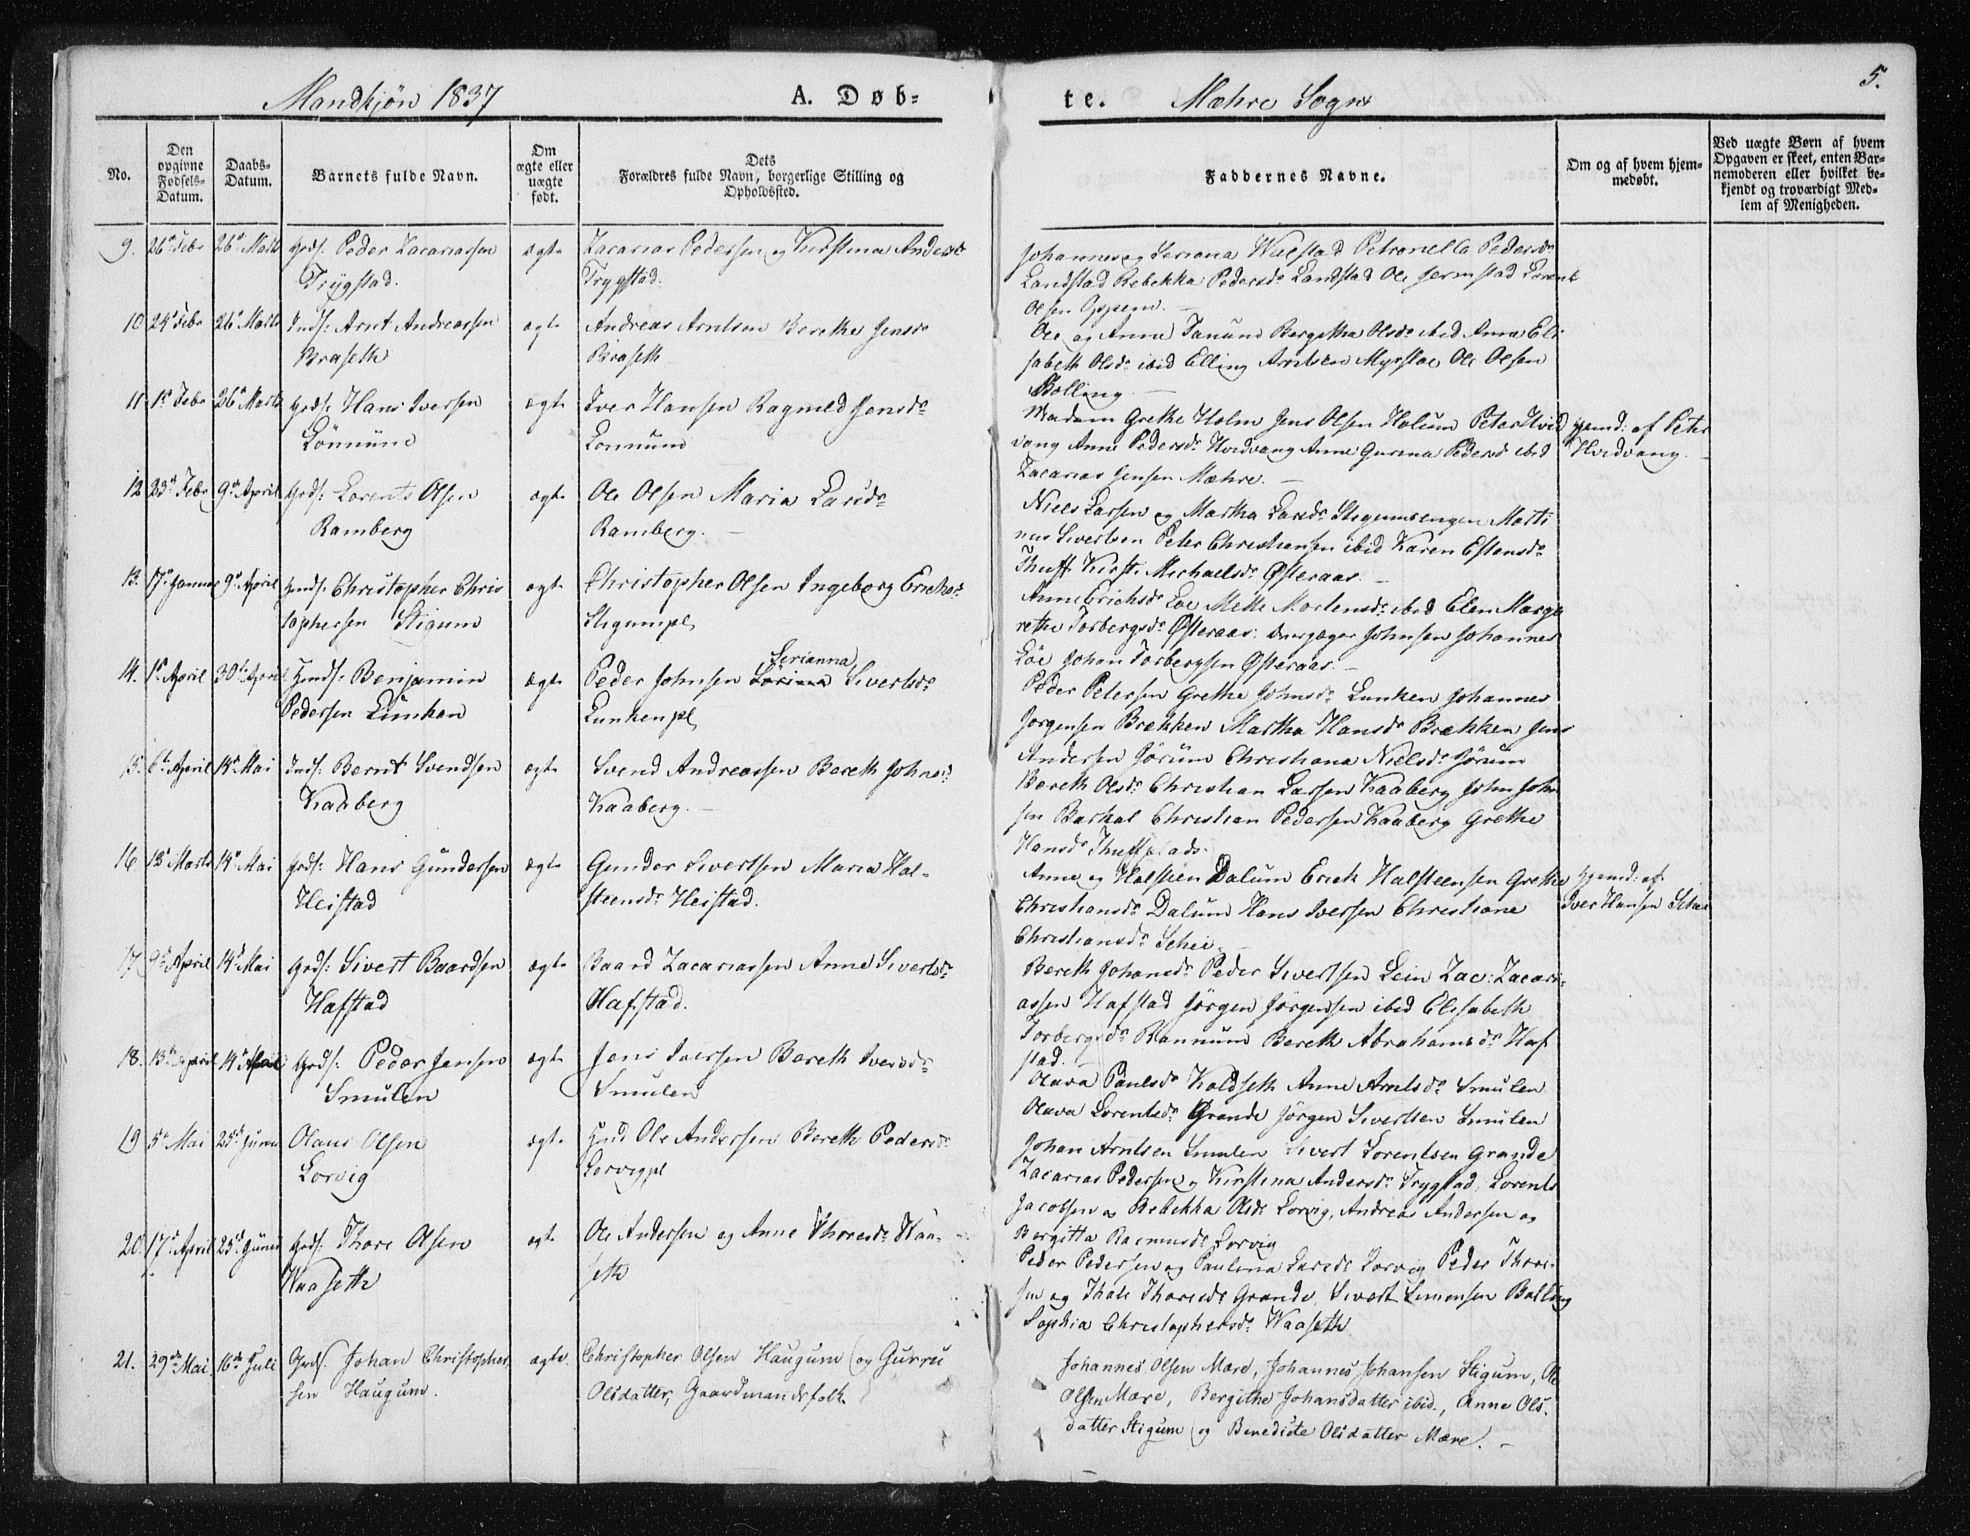 Mandkjøn 1837
A. Døb-
te.
Mæhre Sogn
5.
No.
Den opgivne Fødsels-Datum.
Daabs-Datum.
Barnets fulde Navn.
Om ægte eller uægte født.
Dets Forældres fulde Navn, borgerlige Stilling og Opholdssted.
Faddernes Navne.
Om og af hvem hjemmedøbt.
Ved uægte Børn af hvem Opgaven er skeet, enten Barnemoderen eller hvilket bekjendt og troværdigt Medlem af Menigheden.
9. 26de Febr 26de Marts Grds: Peder Zacariassen ægte Zacarias Pedersen og Kirstina Andersdr
Trygstad. Trygstad.
Johannes og Seriana Walstad Petronella Pedersdr
Landstad Rebekka Pedersdr Landstad Ole Jermstad Lorents
Olsen Oppem. -
10 24de Febr 26de Marts Inds: Arnt Andreassen ægte Andreas Arntsen Berethe Jensdr
Braseth Braseth
Ole og Anna Tanum Bergitha Olsdr ibid Anna Eli
sabeth Olsdr ibid Elling Arntsen Myrstae Ole Olsen
Bolling -
11 1de Febr 26de Marts Grds: Hans Iversen ægte Iver Hansen Ragnild Jensdr
Lönnum Lonnum
Madam Grethe Holm Jens Olsen Holum Peter Hvid
vang Anne Pedersdr Hvidvang Anne Gurina Pedersd ibid
Zacarias Jensen Mæhre. -
hjemd: af Peter
Hvidvang. -
12 23de Febr 9de April Grds: Lorents Olsen ægte Ole Olsen Maria Larsdr
Ramberg Ramberg. -
Niels Larsen og Martha Larsdr Stigumsengen Marti
nus Sivertsen Peter Christiansen ibid Karen Estensdr
Thuft Kirst. Michaelsdr Østeraas. -
13. 17de Januar 9de April Hmds: Christopher Chris ægte Christopher Olsen Ingeborg Erichsdr
tophersen Stigum Stigumpl.
Anne Erichsdr Loe Mette Mortensdr ibid Elen Marga
rethe Torbergsdr Østeraas: Johnsen Johannes
Löe Johan Torbergsen Østeraas. -
14. 1de April 30de April Hmds: Benjamin ægte Peder Johnsen Serianna Sivertsdr
Pedersen Lunken Lunkenpl.
Peder Petersen Grethe Johnsdr Lunken Johannes
Jorgensen Brækken Martha Hansdr Brækken Jens
Andersen Jörum Christiana Nielsdr Jörum
15. 6de April 14de Mai Inds: Bernt Svendsen ægte Svend Andreassen Bereth Johnsdr
Kaaberg Kaaberg. -
Bereth Olsdr Christian Larsen Kaaberg John John
sen Barhal Christian Pedersen Kaaberg Grethe
Hansdr Thuftplads.
16 12de Marts 14de Mai Grds: Hans Gundersen ægte Gunder Sivertsen Maria Hal-
Heistad steensdr Heistad.
Anne og Halsteen Dalum Erich Halsteensen Grethe
Christiansdr Dalum Hans Iversen Christiane
Christiansdr Schei. -
hjemd: af
Iver Hansen Schei
17 9de April 14de Mai Grds: Sivert Baardsen ægte Baard Zacariassen Anne Sivertsdr
Hafstad Hafstad.
Bereth Johansdr Peder Sivertsen Lein Zac: Zacari-
assen Hafstad Jörgen Jörgensen ibid Elisabeth
Torbergsdr Rannum Bereth Abrahamsdr Haf
stad. -
18. 13de April 14de Mai Grds: Peder Jensen ægte Jens Iversen Bereth Iversdr
Smulen Smulen
Olava Paulsdr Koldseth Anne Arntsdr Smulen
Olava Lorentsdr Grande Jörgen Sivertsen Smulen
Johan Arntsen Smulen Sivert Lorentsen Grande
19 5de Mai 25de Junii Olaus Olsen ægte Hmd Ole Andersen Bereth Pedersdr
Lorvig Lorvigpl
Zacarias Pedersen og Kirstina Andersdr Trygstad, Lorents
Jacobsen og Rebekka Olsdr Lorvig, Andreas Andersen og
Bergitta Rasmusdr Lorvig
20. 17de April 25de Junii Grds: Thore Olsen ægte Ole Andersen og Anne Thoresdr Waa-
Waaseth seth
Peder Pedersen og Paulina Larsdr Lorvig Peder Thore-
sen og Thale Thoresdr Grande, Sivert Simonsen Bolling
Sophia Christophersdr Waaseth
21. 29de Mai 16de Juli Grds. Johan Christopher- ægte. Christopher Olsen Haugum og Gurru
sen Haugum. Olsdatter, Gaardmandsfolk
Johannes Olsen Mære, Johannes Johansen Stigum, Ole
Olsen Mære, Bergithe Johansdatter ibid., Anne Ols-
datter Stigum og Benedicte Olsdatter Mære. -